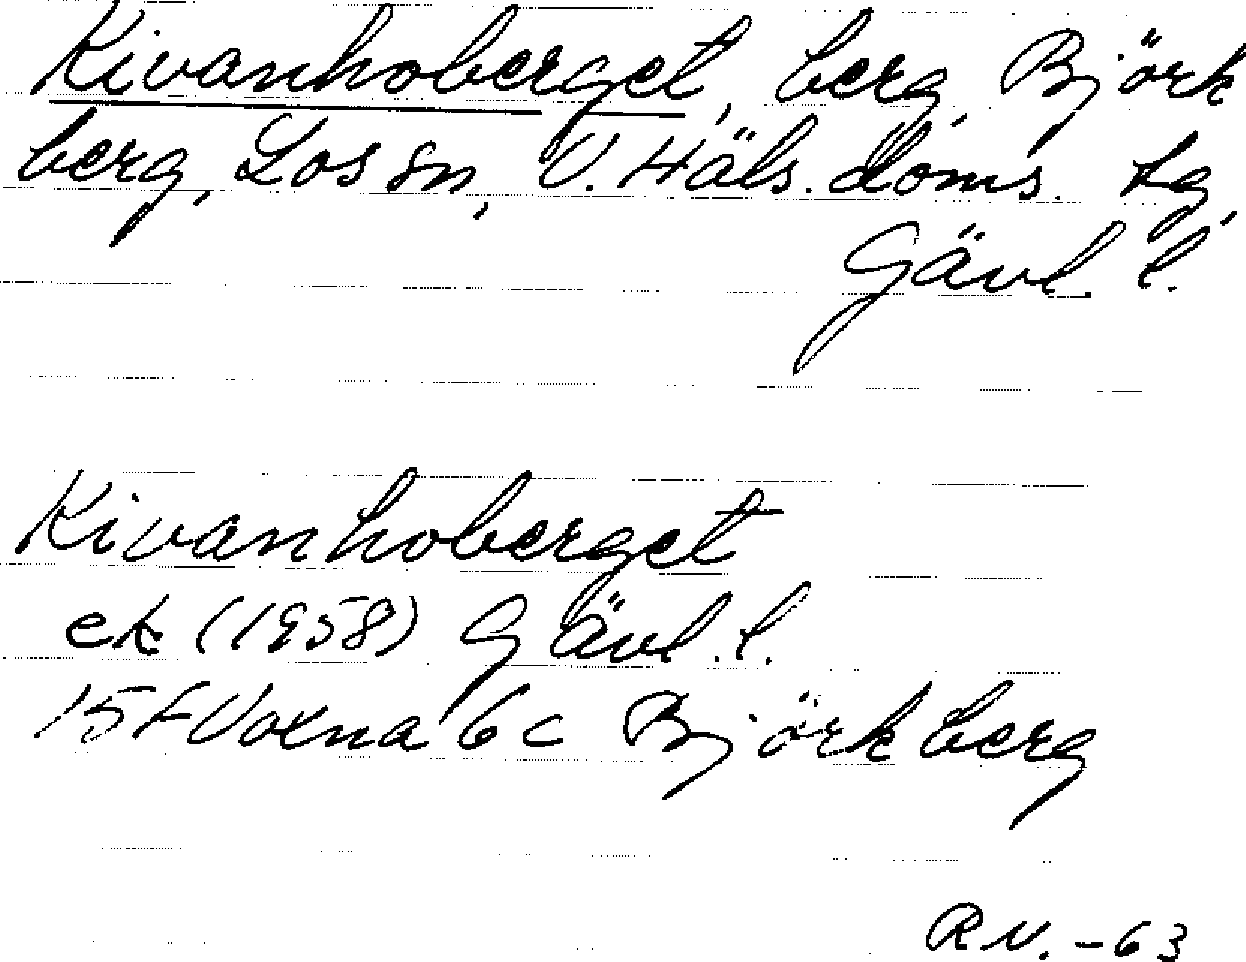 Kivanhoberget, berg, Björk
berg, Los sn, V. Häls. doms. tg,
Gävl. l.
Kivanhoberget
ek (1958) Gävl. l.
15 F Voxna 6 c Björkberg
R N. -63